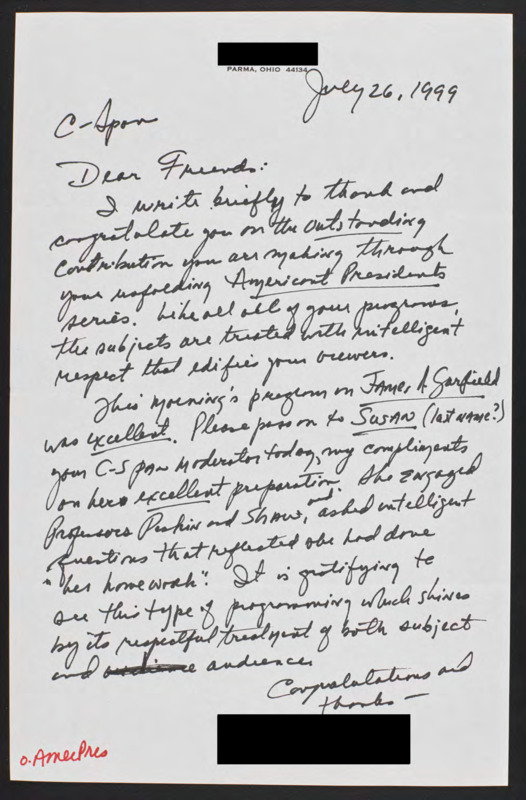 PARMA, OHIO 44134
July 26, 1999
C-Span
Dear Friends:
I write briefly to thank and
congratulate you on the outstanding
contribution you are making through
your unfolding American Presidents
series. Like all of your programs,
the subjects are treated with intelligent
respect that edifies your viewers.
This morning's program on James A Garfield
was excellent. Please pass on to SUSAN (last NAME?)
your C-SPAN Moderator today, my compliments
on her excellent preparation. She ENgaged
Professors Peskin and Shaw, and asked intelligent
questions that reflected she had done
"her homework". It is gratifying to
see this type of programming which shines
by its respectful treatment of both subject
and audience audience.
Congratulations and
thanks —
o. AmerPres